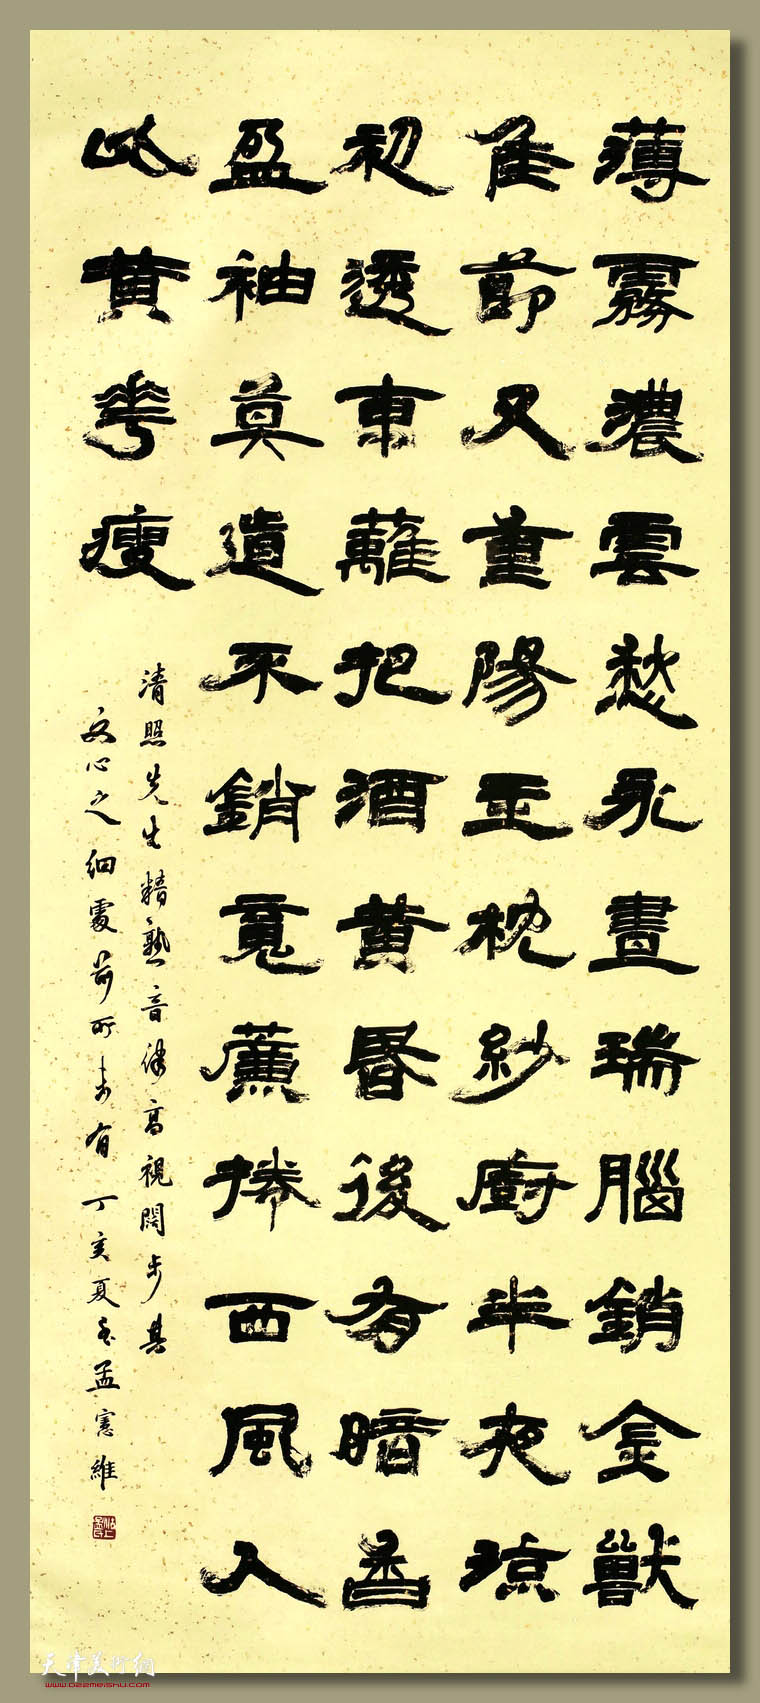 薄霧濃雲愁永晝瑞腦銷金獸
佳節又重陽玉枕紗廚半夜涼
初透東蘺把酒黃昏後有暗香
盈袖莫道不銷魂薕捲西風人
比黃花瘦
清照先生精熟音律高視闊步其
文心之細處前所未有丁亥夏至孟憲維
天津美術網
www.022meishu.com